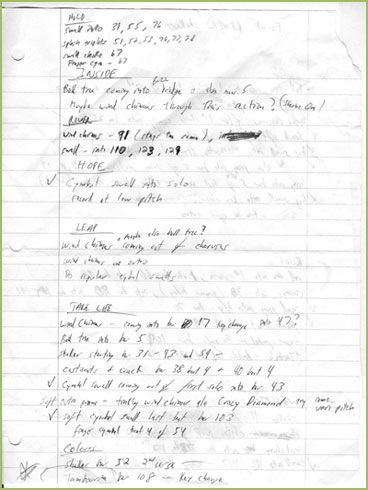 HOLD
swell into 31, 55, 76
splash triplets 51, 52, 53, 76, 77, 78
small shake 67
Finger cym - 67
INSIDE
Bell tree coming into bridge + also msr. 5
Maybe wind chimes through this section?
RIVER
wind chimes - 91 (stays the same),
swell - into 110, 123, 129
HOPE
✓ Cymbal swell into solos
record at low pitch
LEAP
, maybe also bell tree?
wind chimes coming out of choruses
wind chimes on intro
Do regular cymbal swells
TAKE LIFE
wind chimes - coming into bar 17 key change into 47?
Bell tree into bar 5
shaker starting bar 31 - 43 and 59 -
castanets + crack bar 38 beat 4 + 40 beat 4
✓ Cymbal swell coming out of first solo into bar 43
Soft intro piano - trolly wind chimes ala Crazy Diamond
vari pitch
✓ soft cymbal swell last bar bar 103
finger cymbal beat 4 of 54
Colours
shaker bar 52 2nd verse
Tambourine bar 108 - key change